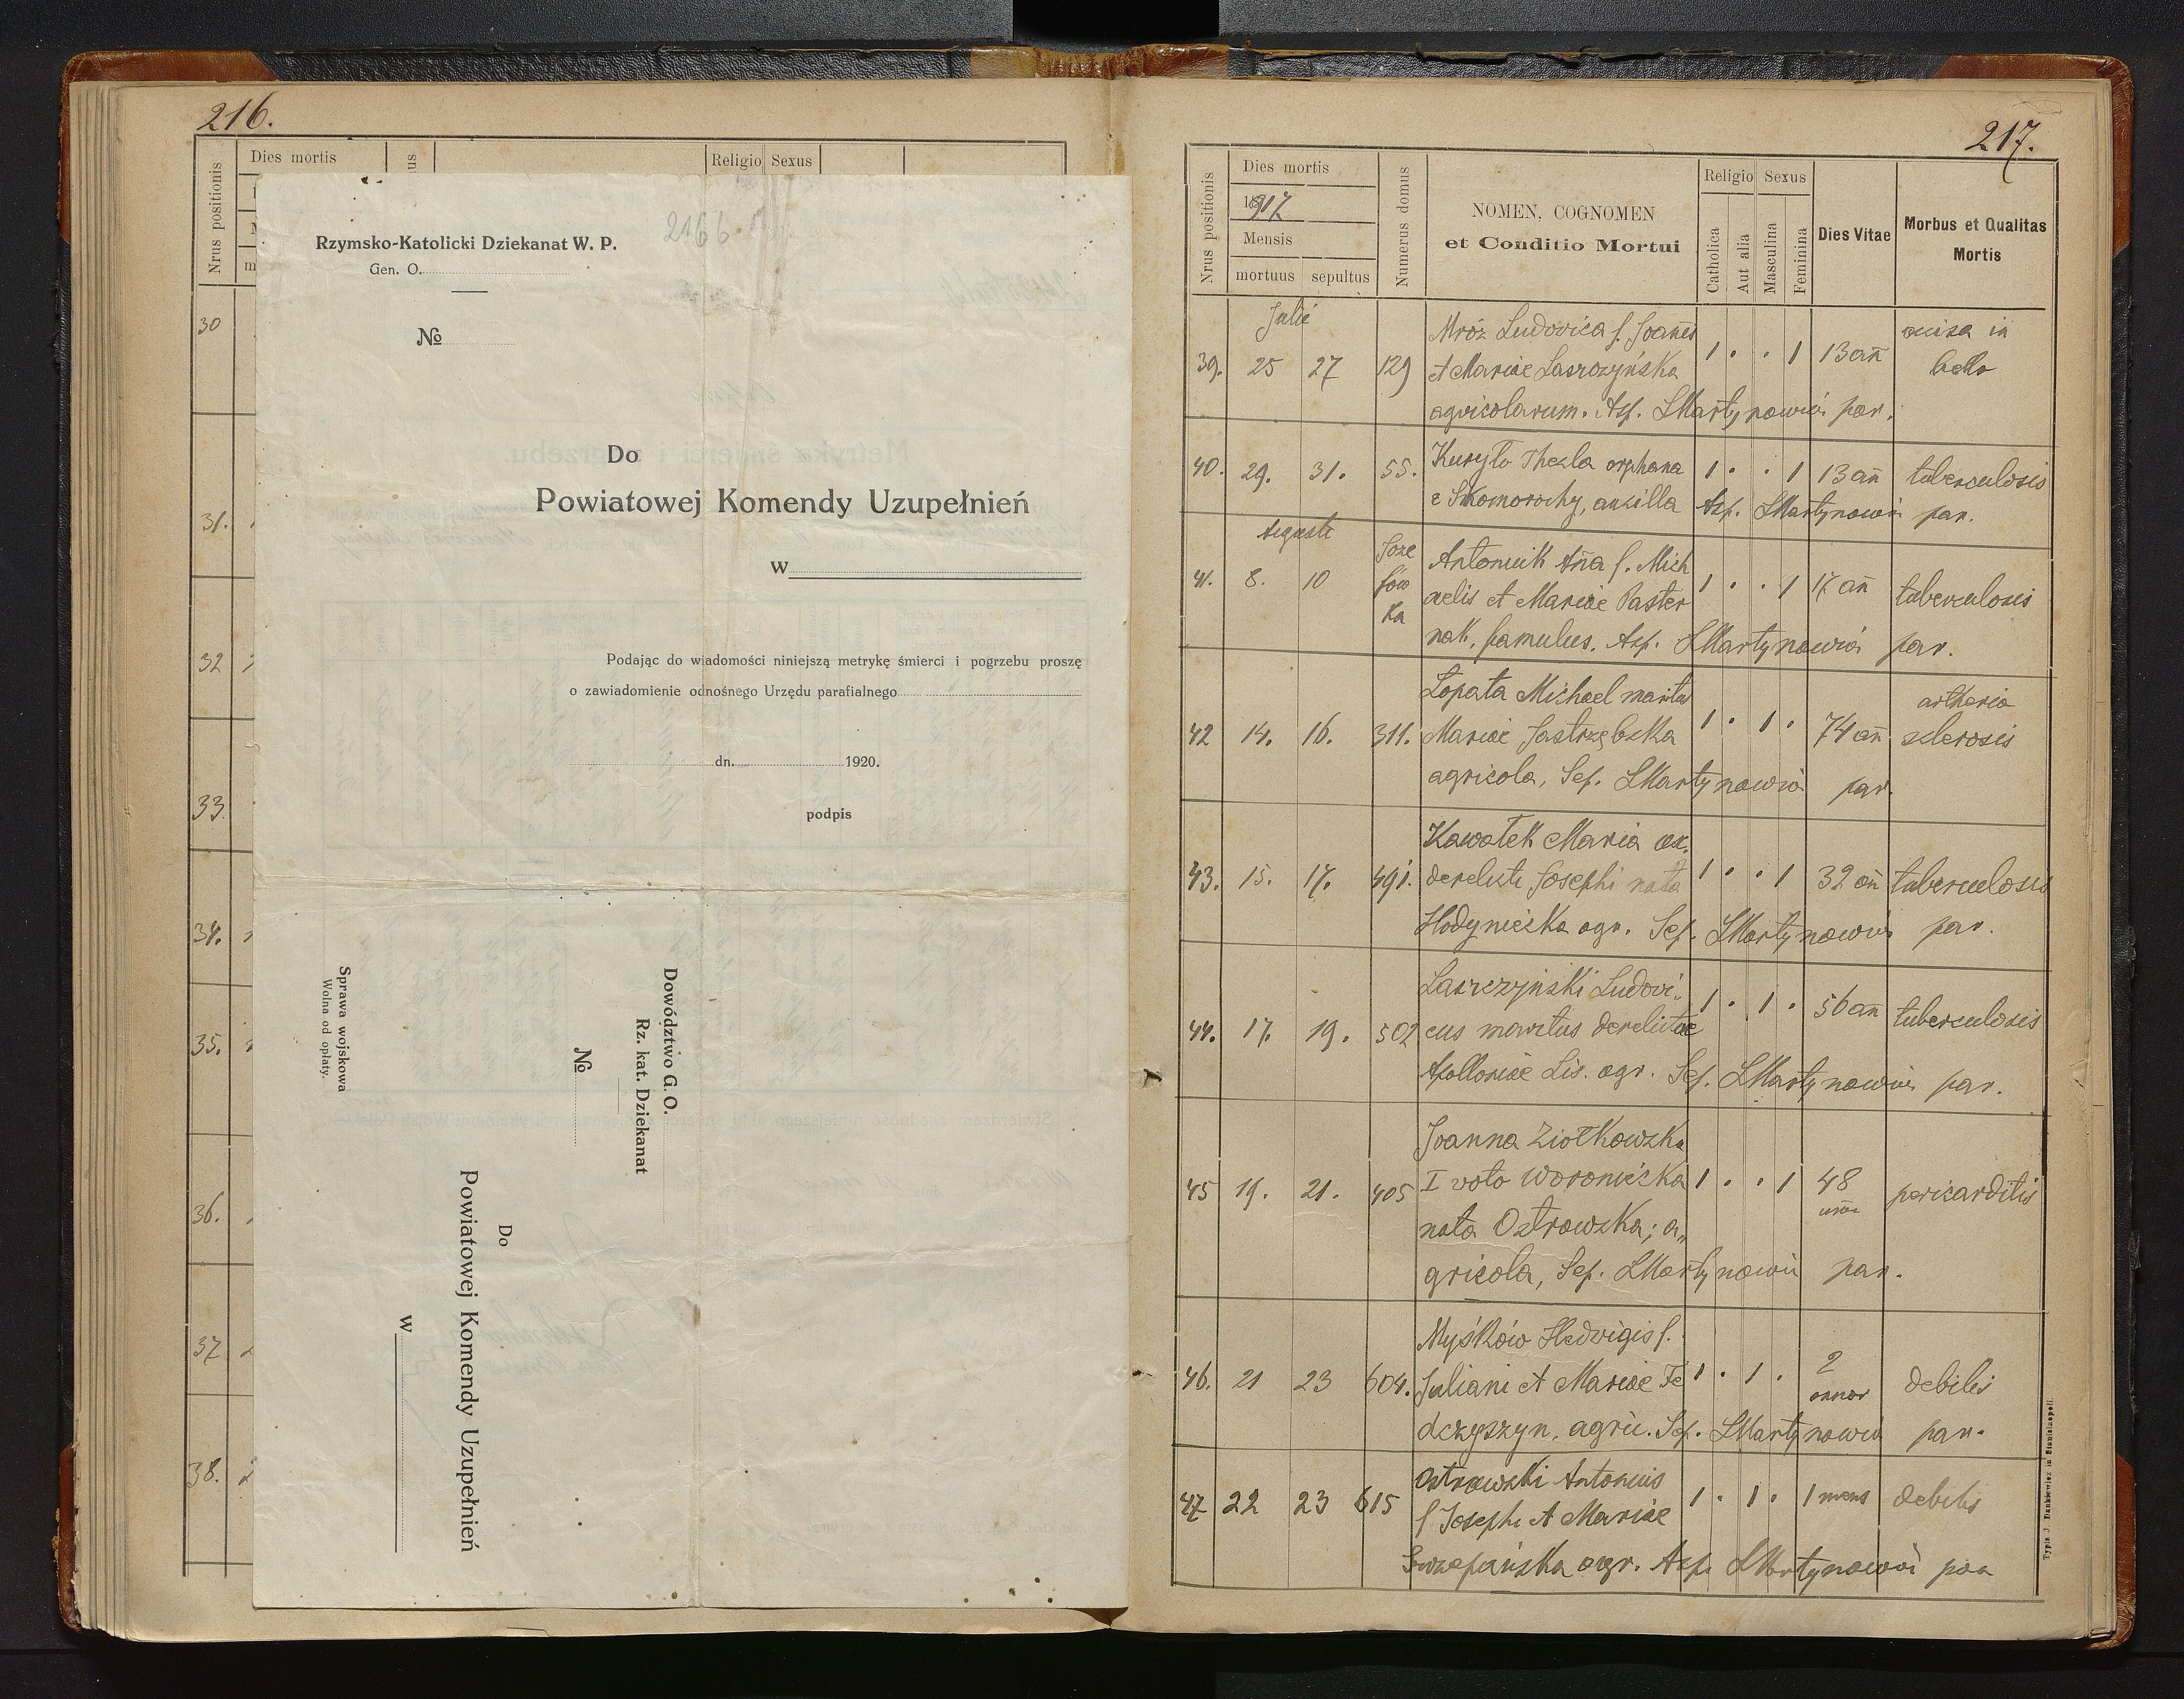 216.
Nrus positionis
Dies mortis
Religio
Sexus
30
31.
32
33.
34.
35.
36.
37
38.
Rzymsko-Katolicki Dziekanat W. P.
Gen. O.
2166
№
Do
Powiatowej Komendy Uzupełnień
w
Podając do wiadomości niniejszą metrykę śmierci i pogrzebu proszę
o zawiadomienie odnośnego Urzędu parafialnego
dn. 1920.
podpis
Dowództwo G. O.
Rz. kat. Dziekanat
№
Sprawa wojskowa
Wolna od opłaty.
Do
Powiatowej Komendy Uzupełnień
w
217.
Nrus positionis
Dies mortis
1917
Mensis
mortuus sepultus
Numerus domus
NOMEN, COGNOMEN
et Conditio Mortui
Religio Sexus
Catholica
Aut alia
Masculina
Feminina
Dies Vitae
Morbus et Qualitas
Mortis
Julii
Mróz Ludovica f. Joannes
39. 25 27 129 et Mariae Laszczyńska 1 . . 1 13 añ occisa in
bello
agricolarum. Asp. LMartynowicz par.
40. 29. 31. 55. Kuryło Thecla orphana 1 . . 1 13 añ tuberculosis
e Skomorochy, ancilla Asp. LMartynowicz par.
Augusti
41. 8. 10 Joze
fów
ka
Antoniuk Aña f. Mich 1 . . 1 17 añ tuberculosis
aelis et Mariae Paster
nak, famulus. Asp. LMartynowicz par.
Łopata Michael maritus
42 14. 16. 311. Mariae Jastrzębska 1 . 1 . 74 añ artherio
sclerosis
agricola, Sep. LMartynowicz par.
Kawałek Maria ux.
43. 15. 17. 491. derelicti Josephi nata 1 . . 1 32 añ tuberculosis
Hodynicka agr. Sep. LMartynowicz par.
Laszczyński Ludovi-
44. 17. 19. 502 cus maritus derelictae 1 . 1 . 56 añ tuberculosis
Apolloniae Lis. agr. Sep. LMartynowicz par.
Joanna Ziołkowska
45 19. 21. 405 I voto Woronicka 1 . . 1 48 pericarditis
nata Ostrowska; a„
gricola, Sep. LMartynowicz par.
Myśków Hedvigis f.
46. 21 23 604. Juliani et Mariae Fe 1 . 1 . 2
annor debilis
dczyszyn, agric. Sep. LMartynowicz par.
Ostrowski Antonius
47 22 23 615 f Josephi et Mariae 1 . 1 . 1 mens debilis
Szczepańska agr. Asp. LMartynowicz par
Typis J. Dankiewicz in Stanislaopoli.